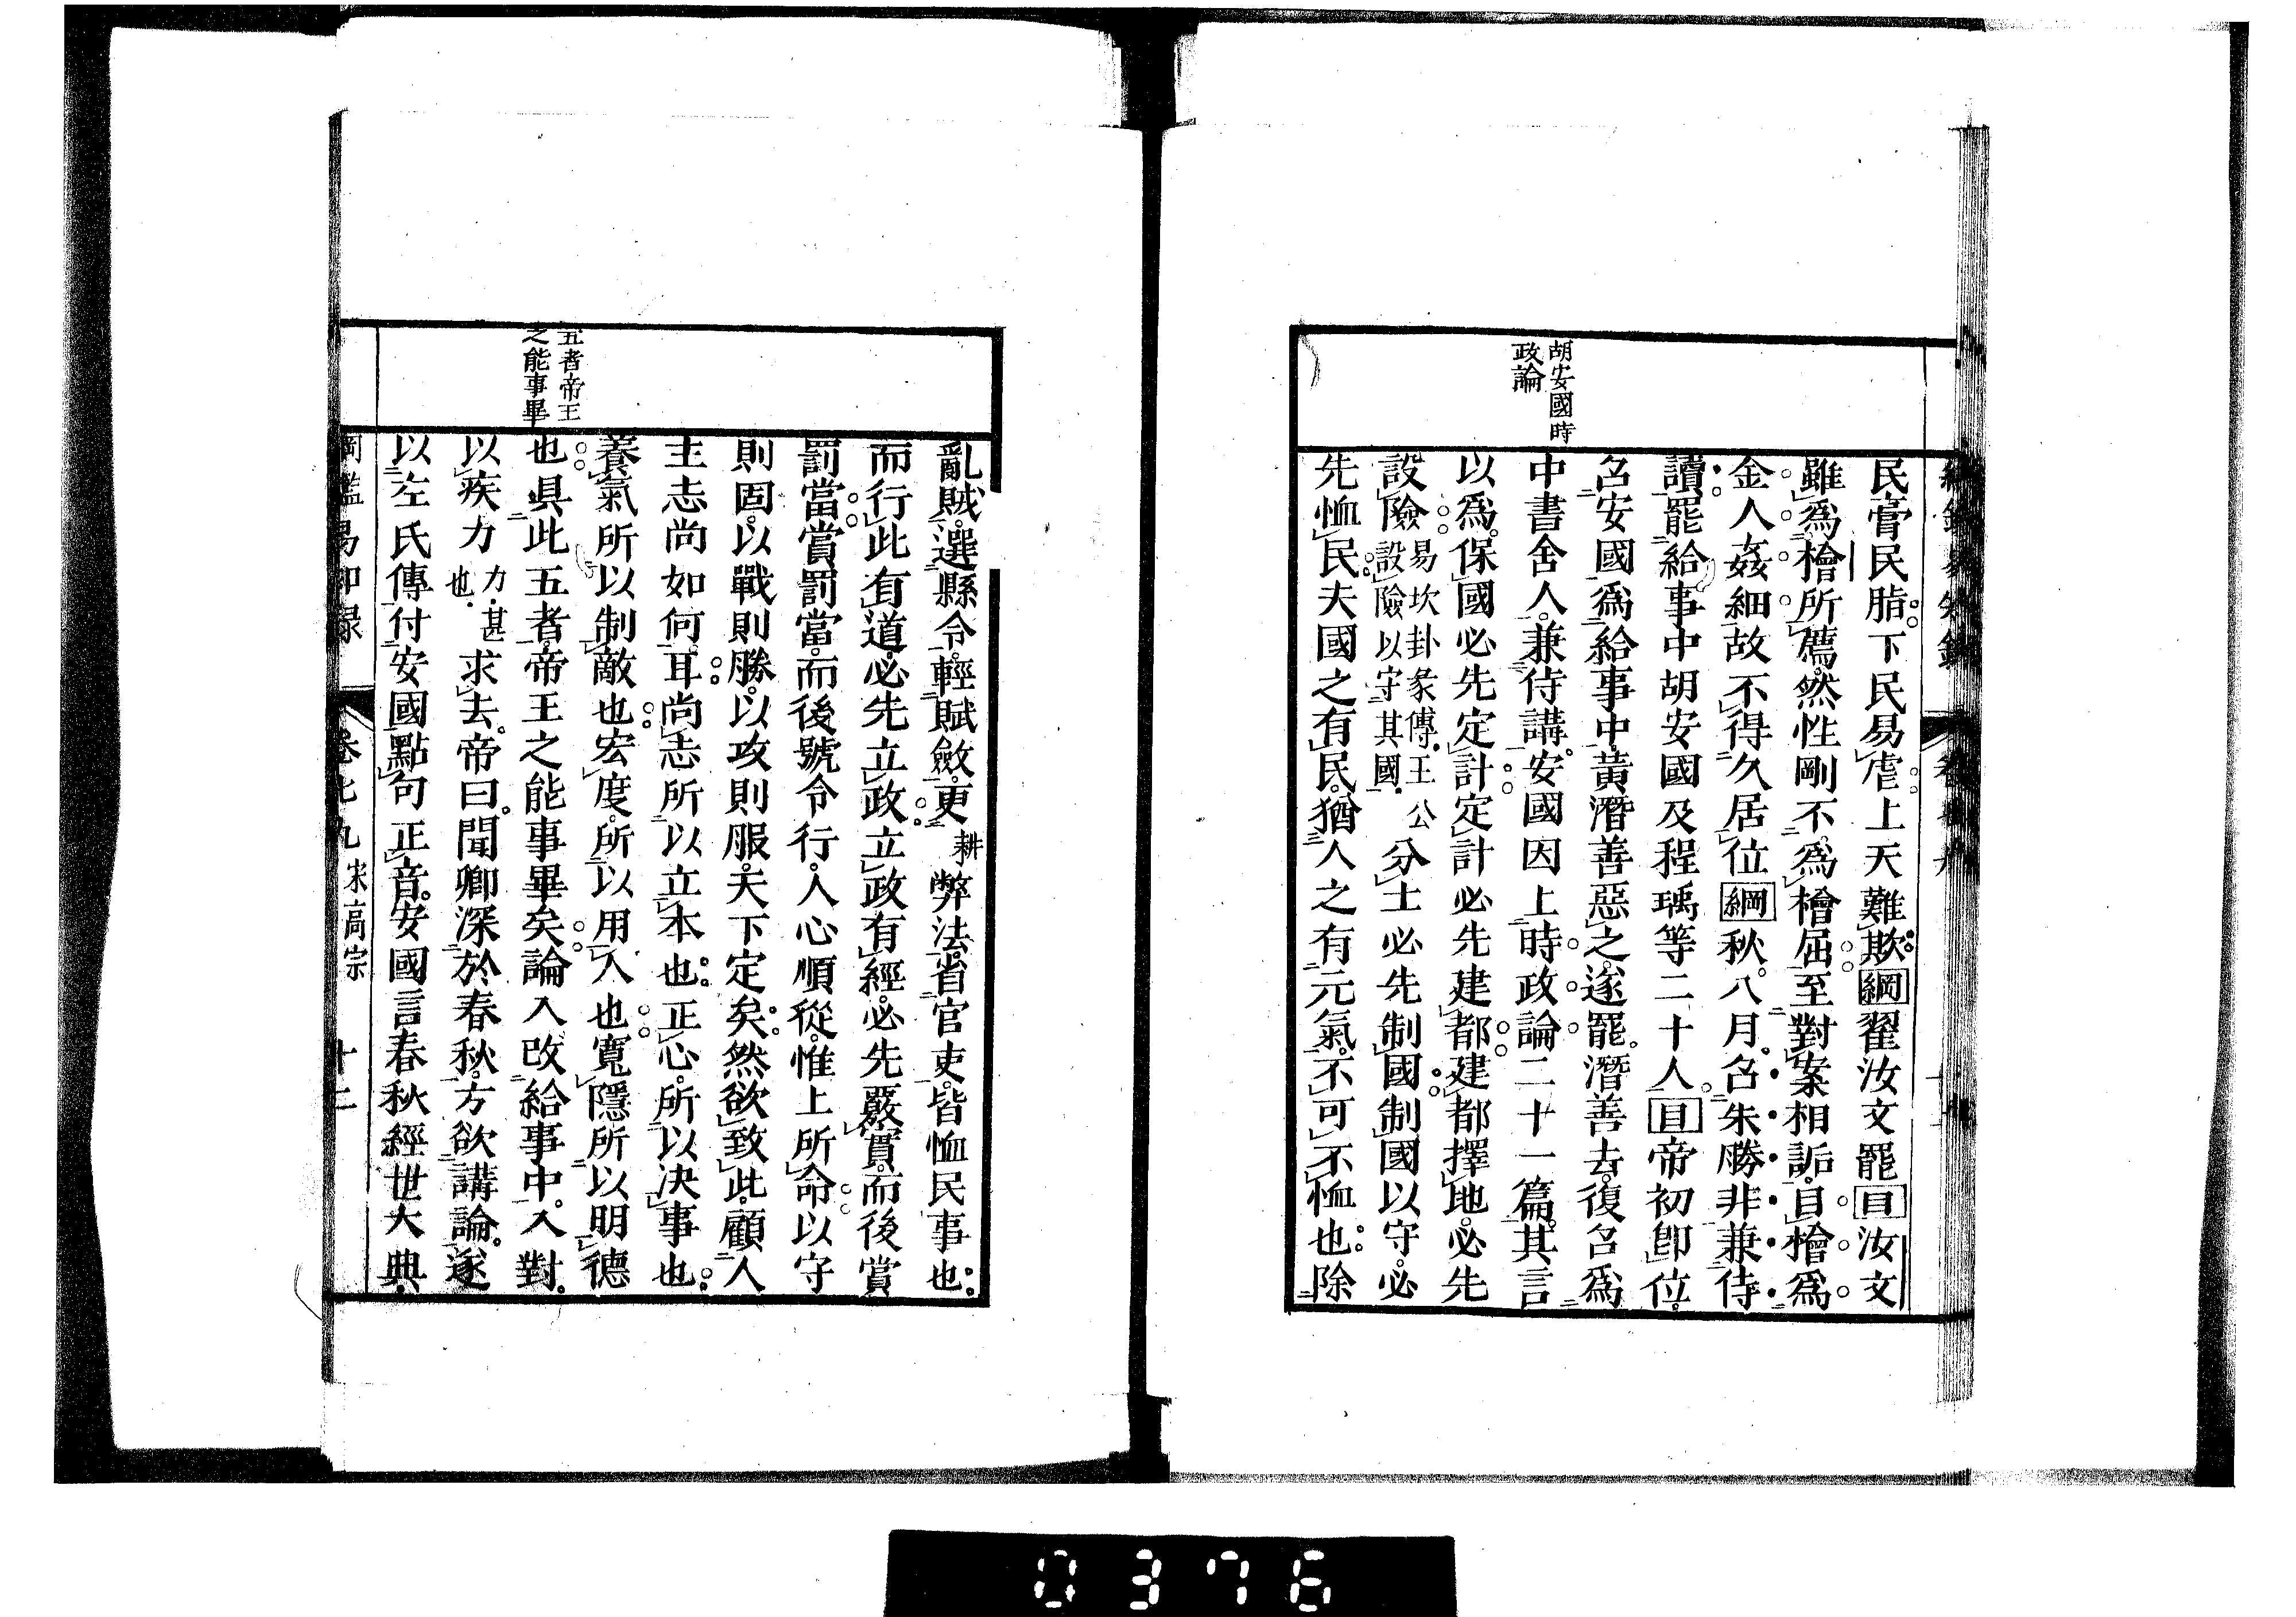 胡安國時
政論
民膏民脂下民易虐上天難欺綱翟汝文罷目汝文
雖爲檜所薦然性剛不爲檜屈至對案相詬目檜爲
金人姦細故不得久居位綱秋八月召朱勝非兼侍
讀罷給事中胡安國及程瑀等二十人目帝初卽位
召安國爲給事中黃潛善惡之遂罷潛善去復召爲
中書舍人兼侍講安國因上時政論二十一篇其言
以爲保國必先定計定計必先建都建都擇地必先
設險易坎卦彖傳王公設險以守其國分土必先制國制國以守必
先恤民夫國之有民猶人之有元氣不可不恤也除
五者帝王
之能事畢
亂賊選縣令輕賦斂更耕弊法省官吏皆恤民事也
而行此有道必先立政立政有經必先嚴實而後賞
罰當賞罰當而後號令行人心順從惟上所命以守
則固以戰則勝以攻則服天下定矣然欲致此顧人
主志尚如何耳尚志所以立本也正心所以決事也
養氣所以制敵也宏度所以用人也寬隱所以明德
也具此五者帝王之能事畢矣論入改給事中入對
以疾力力甚也求去帝曰聞卿深於春秋方欲講論遂
以左氏傳付安國點句正音安國言春秋經世大典
綱鑑易知録 卷七九 宋高宗 十二
0376